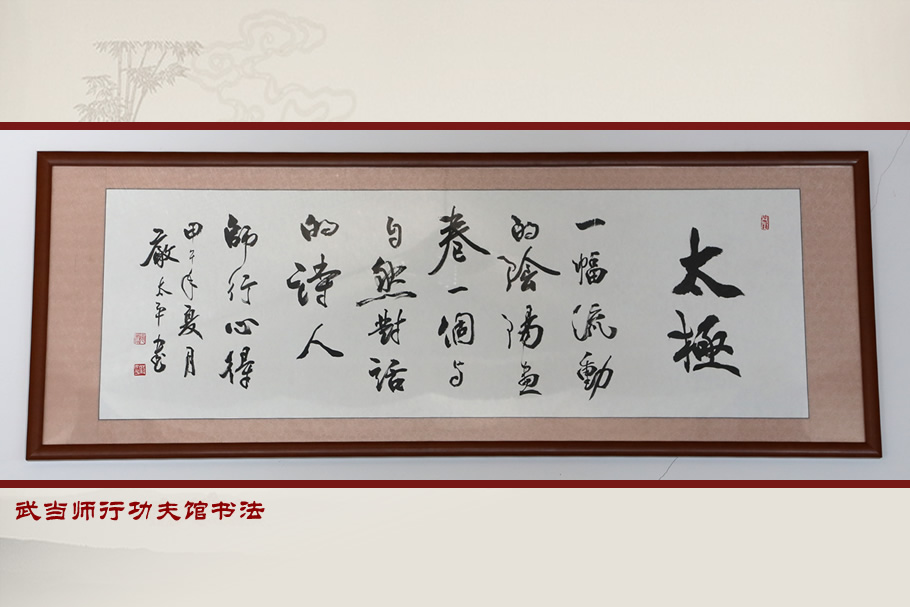 太極
一幅流動
的陰陽畫
卷一個与
自然對話
的詩人
師行心得
甲午年夏月
嚴太平書
武当师行功夫馆书法